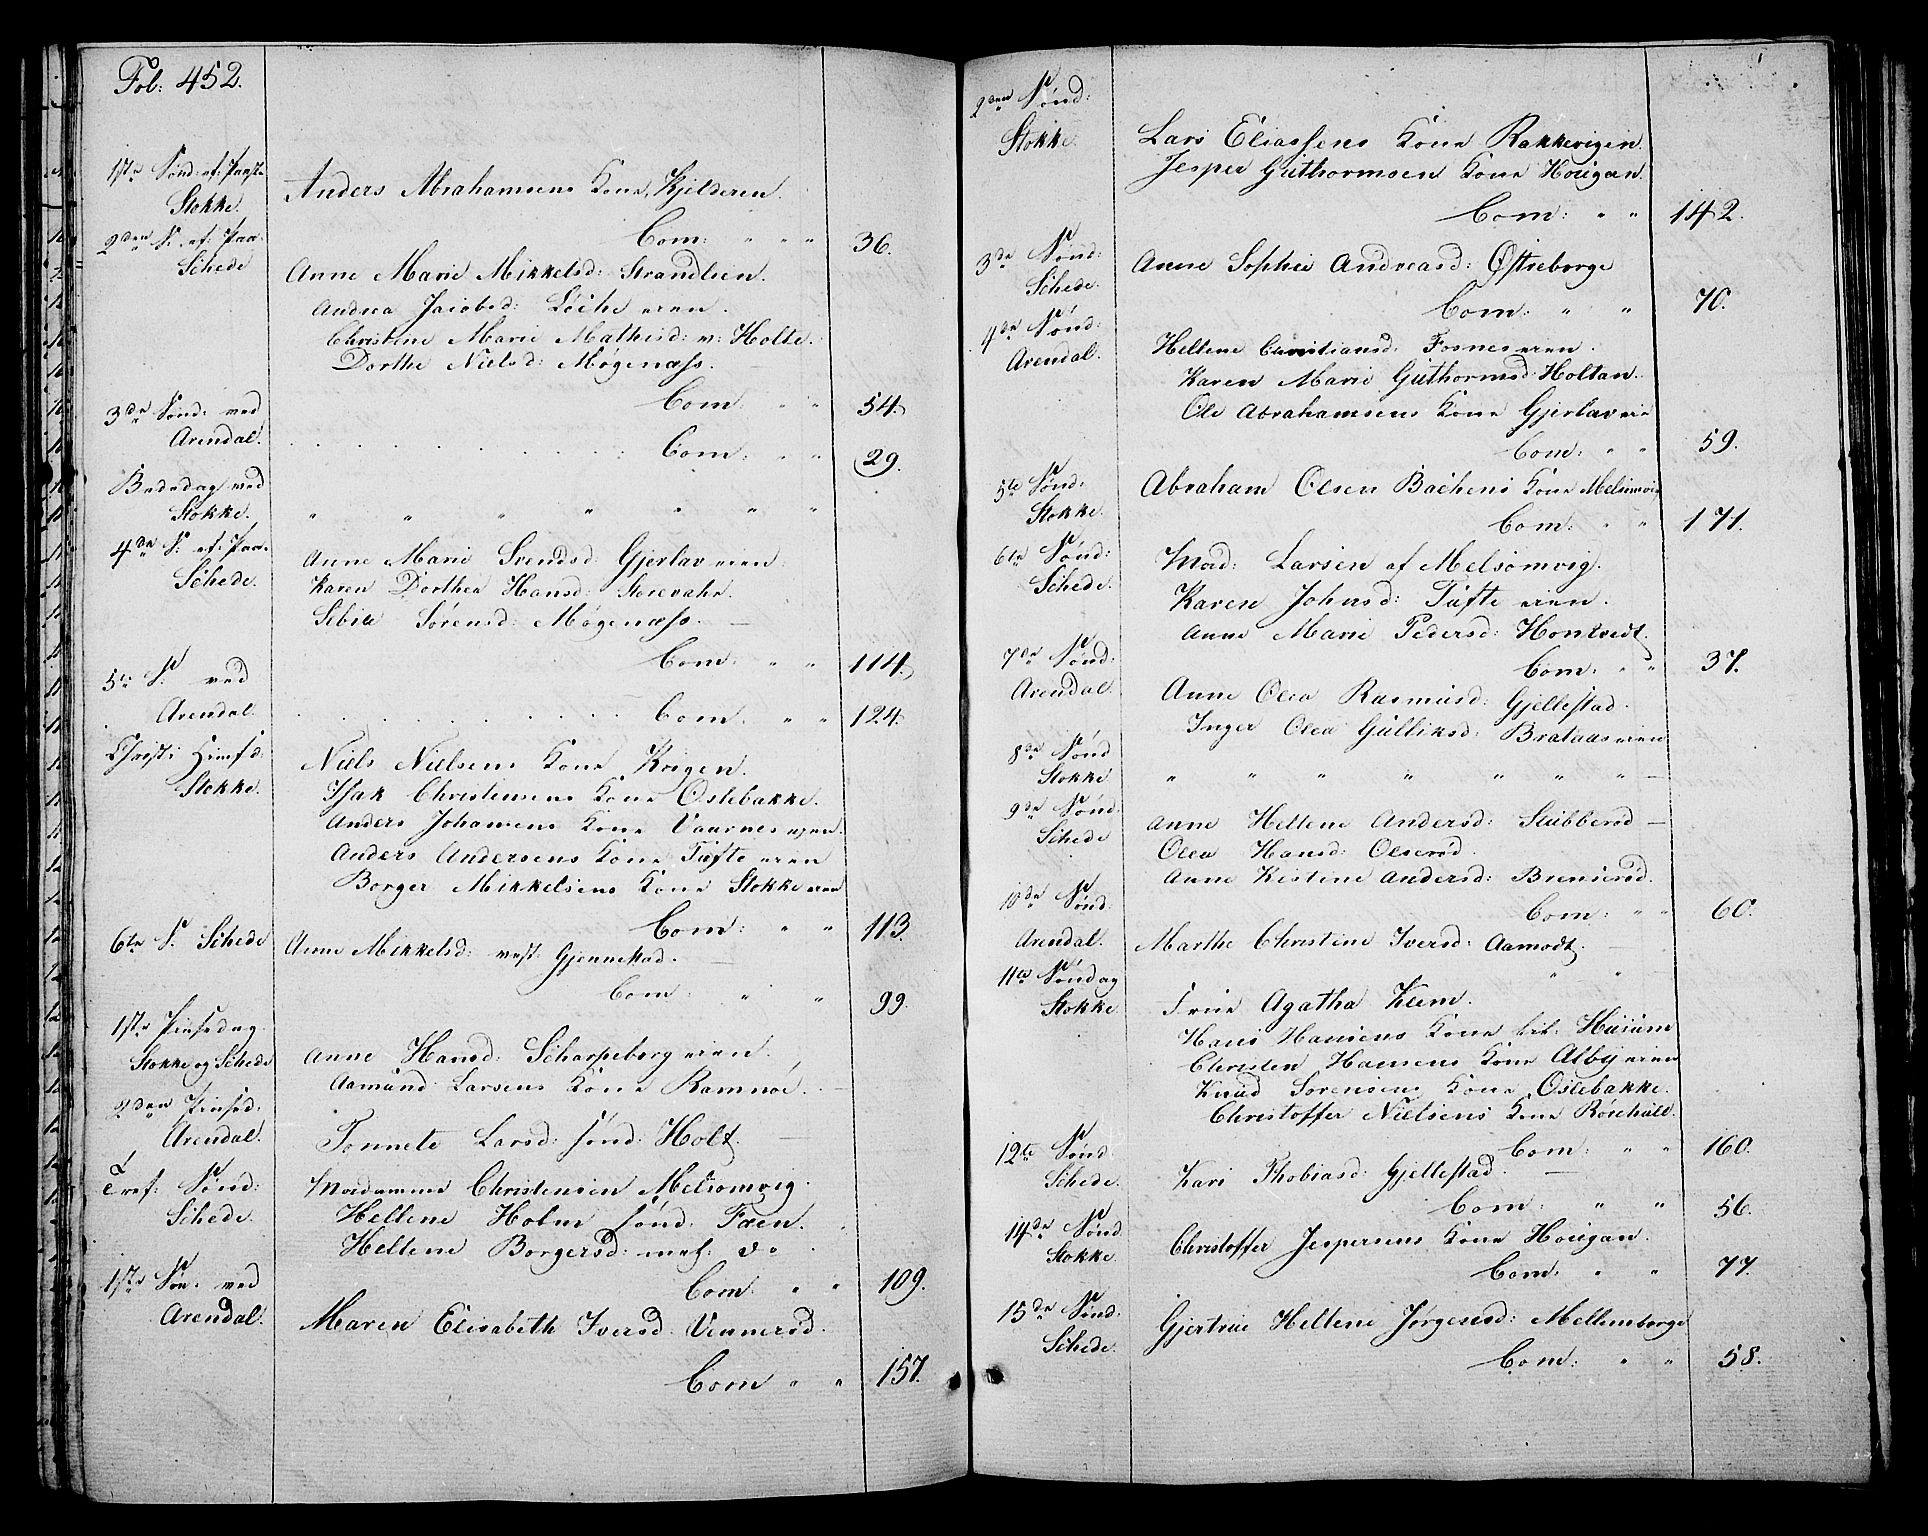 Fol: 452.
1ste Sönd. ef: Paaske
Stokke.
Anders Abrahamsens Kone, Kjilderen.
Com: " " " 36.
2den S. ef: Paa.
Schede
Anne Marie Mikkelsd: Strandlien.
Andrea Jacobsd: Löckeeien.
Christine Marie Mathisd: v: Holte.
Dorthe Nielsd: Mögenæss.
Com. " " 54.
3de Sönd: ved
Arendal.
Com: " " 29.
Bededag ved
Stokke.
" " " " " " "
4de S. ef: Paa.
Schede.
Anne Marie Svendsd: Gjerlaveien.
Karen Dorthea Hansd: Storevahr.
Sebile Sörensd: Mögenæss.
Com: " " 114.
5te S. ved
Arendal.
Com. " " 124.
Christi Himfd:
Stokke.
Niels Nielsens Kone Krigen.
Isak Christensens Kone Oslebakke.
Anders Johansens Kone Vaarneseien.
Anders Andersens Kone Tufteeien
Borger Mikkelsens Kone Stokkeeien
Com: " " 113.
6te S. Schede
Anne Mikkelsd: vest: Gjennestad.
Com: " " 99.
1ste Pinsedag.
Stokke og Schede
Anne Hansd: Scharpeborgeien.
Aamund Larsens Kone Ramnöe.
2den Pinsed:
Arendal.
Tonnete Larsd: sönd: Holt.
Tref: Sönd:
Schede.
Madamme Christensen Melsomvig.
Hellene Holm sönd: Faen.
Hellene Borgersd: mef: do
Com. " " 109.
1ste Sön. ved
Arendal.
Maren Elisabeth Iversd. Vennersd.
Com " " 157.
2den Sönd:
Stokke.
Lars Eliassens Kone Rakkevigen.
Jesper Guthormsen Kone Hougan.
Com: " " 142.
3de Sönd:
Schede.
Anne Sophie Andreasd: Østreborge
Com: " " 70.
4de Sönd:
Arendal.
Hellene Christiansd: Fosneseien.
Karen Marie Guthormsd: Holtan.
Ole Abrahamsens Kone Gjerlaveie
Com: " " 59.
5te Sönd:
Stokke.
Abraham Olsen Bachens Kone Melsomvig
Com: " " 171.
6te Sönd:
Schede.
Mad: Larsen af Melsomvig.
Karen Johnsd: Tufteeien.
Anne Marie Pedersd: Hontvedt.
Com: " " 37.
7de Sönd:
Arendal.
Anne Olea Rasmusd: Gjellestad.
Inger Olea Gulliksd: Brataaseien
8de Sönd
Stokke
" " " " " " "
9de Sönd:
Schede
Anne Hellene Andersd: Stubberød
Olea Hansd: Olserød.
Anne Kistine Andersd: Brunserød.
Com: " " 60.
10de Sönd:
Arendal.
Marthe Christine Iversd: Aamodt.
" "
11te Söndag
Stokke.
Frue Agatha Klem.
Hans Hansens Kone lil: Huium
Christen Hansens Kone Albyeien
Knud Sörensens Kone Oslebakke.
Christoffer Nielsens Kone Rörehald.
Com: " " 160.
12te Sönd.
Schede.
Kari Thobiasd: Gjellestad.
Com: " " 56.
14de Sönd
Stokke.
Christoffer Jespersens Kone Hougan.
Com: " " 77.
15de Sönd.
Schede.
Gjertrue Hellene Jørgensd: Mellemborge
Com: " " 58.